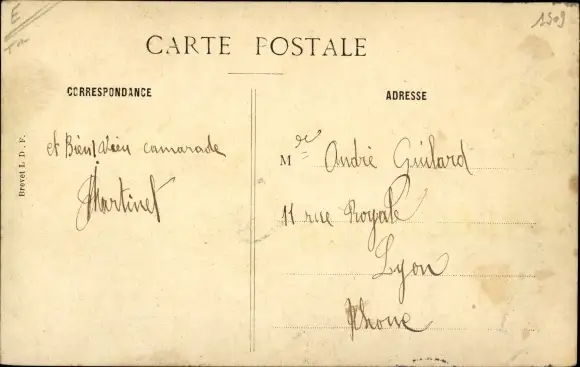 E
1909
CARTE POSTALE
CORRESPONDANCE
ADRESSE
et Bien! Vieu camarade
Martinet
Mr André Guilard
11 rue Royale
Lyon
Rhone
Brevet L. D. F.